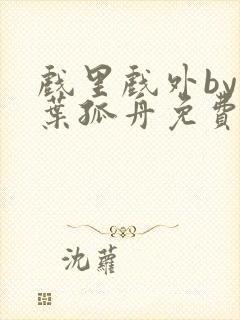 戏里戏外by
葉孤舟免費
沈蘿